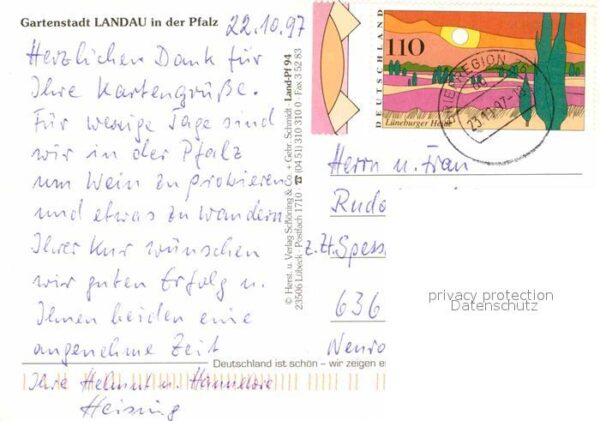 Gartenstadt LANDAU in der Pfalz
22.10.97
Herzlichen Dank für
Ihre Kartengrüße.
Für wenige Tage sind
wir in der Pfalz
um Wein zu probieren
und etwas zu wandern
Ihrer Kur wünschen
wir guten Erfolg u.
Ihnen beiden eine
angenehme Zeit
Ihre Helmut u. Hannelore
Heising
© Herst. u. Verlag Schöning & Co. + Gebr. Schmidt · Land-Pf 94
23506 Lübeck · Postfach 1710 · ☎ (04 51) 310 310 0 · Fax 3 52 83
DEUTSCHLAND
110
Lüneburger Heide
Herrn u. Frau
Rudo
z.Zt. Spess
636
Neuro
privacy protection
Datenschutz
Deutschland ist schön – wir zeigen es